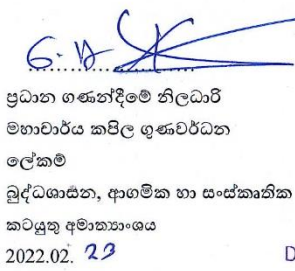 ප්‍රධාන ගණන්දීමේ නිලධාරි
මහාචාර්ය කපිල ගුණවර්ධන
ලේකම්
බුද්ධශාසන, ආගමික හා සංස්කෘතික
කටයුතු අමාත්‍යාංශය
2022.02. 23
D